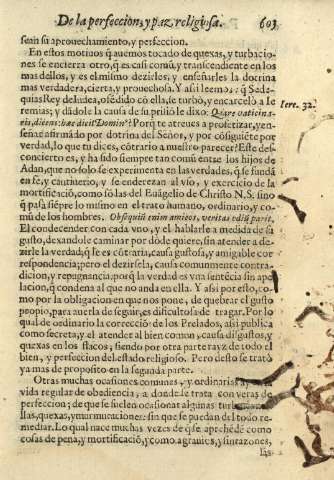 De la perfeccion, y paz religiosa. 603
sean su aprouechamiento, y perfeccion.
En estos motiuos q̃ auemos tocado de quexas, y turbacio
nes se encierra otro, q̃ es casi comũ, y transcendente en los
mas dellos, y es el mismo dezirles, y enseñarles la doctrina
mas verdadera, cierta, y prouechosa. Y assi leemos: q̃ Sede-
quias Rey de Iudea, ofẽdido cõ ella, se turbò, y encarcelò a Ie
remias; y dãdole la causa de su prisiõ le dixo: Quare vaticina-
ris, dicens: hæc dicit Domin⁹? Porq̃ te atreues a profetizar, y en-
señar afirmãdo por dotrina del Señor, y por cõsiguiẽte por
verdad, lo que tu dices, cõtrario a nuestro parecer? Este des-
concierto es, y ha sido siempre tan comũ entre los hijos de
Adan, que no solo se experimenta en las verdades, q̃ se fundã
en fe, y cautiuerio, y se enderezan al viuo, y exercicio de la
mortificaciõ, como sõ las del Euãgelio de Christo N.S. sino
q̃ passa siẽpre lo mismo en el trato humano, ordinario, y co-
mũ de los hombres. Obsequiũ enim amicos, veritas odiũ parit.
El condecender con cada vno, y el hablarle a medida de su
gusto, dexandole caminar por dõde quiere, sin atender a de-
zirle la verdad, q̃ le es cõtraria, causa gustosa, y amigable cor
respondencia; pero el dezirsela, causa comunmente contra-
dicion, y repugnancia, por q̃ la verdad es vna sentẽcia sin apa-
lacion, q̃ condena al que no anda en ella. Y assi por esto, co-
mo por la obligacion en que nos pone, de quebrar el gusto
propio, para auerla de seguir, es dificultosa de tragar. Por lo
qual de ordinario la correcciõ de los Prelados, assi publica
como secreta, y el atender al bien comun, causa disgustos, y
quexas en los flacos, siendo por otra parte rayz de todo el
bien, y perfeccion del estado religioso. Pero desto se tratò
ya mas de proposito en la segunda parte.
Otras muchas ocasiones comunes, y ordinarias ay en la
vida regular de obediencia, a donde se trata con veras de
perfeccion; de que se suelen ocasionar algunas turbaciones
llas, quexas, y murmuraciones: sin que se puedan del todo re-
mediar. Lo qual nace muchas vezes de q̃ se aprehẽde como
cosas de pena, y mortificaciõ, y como agrauios, y sinrazones,
las
Iere. 32.